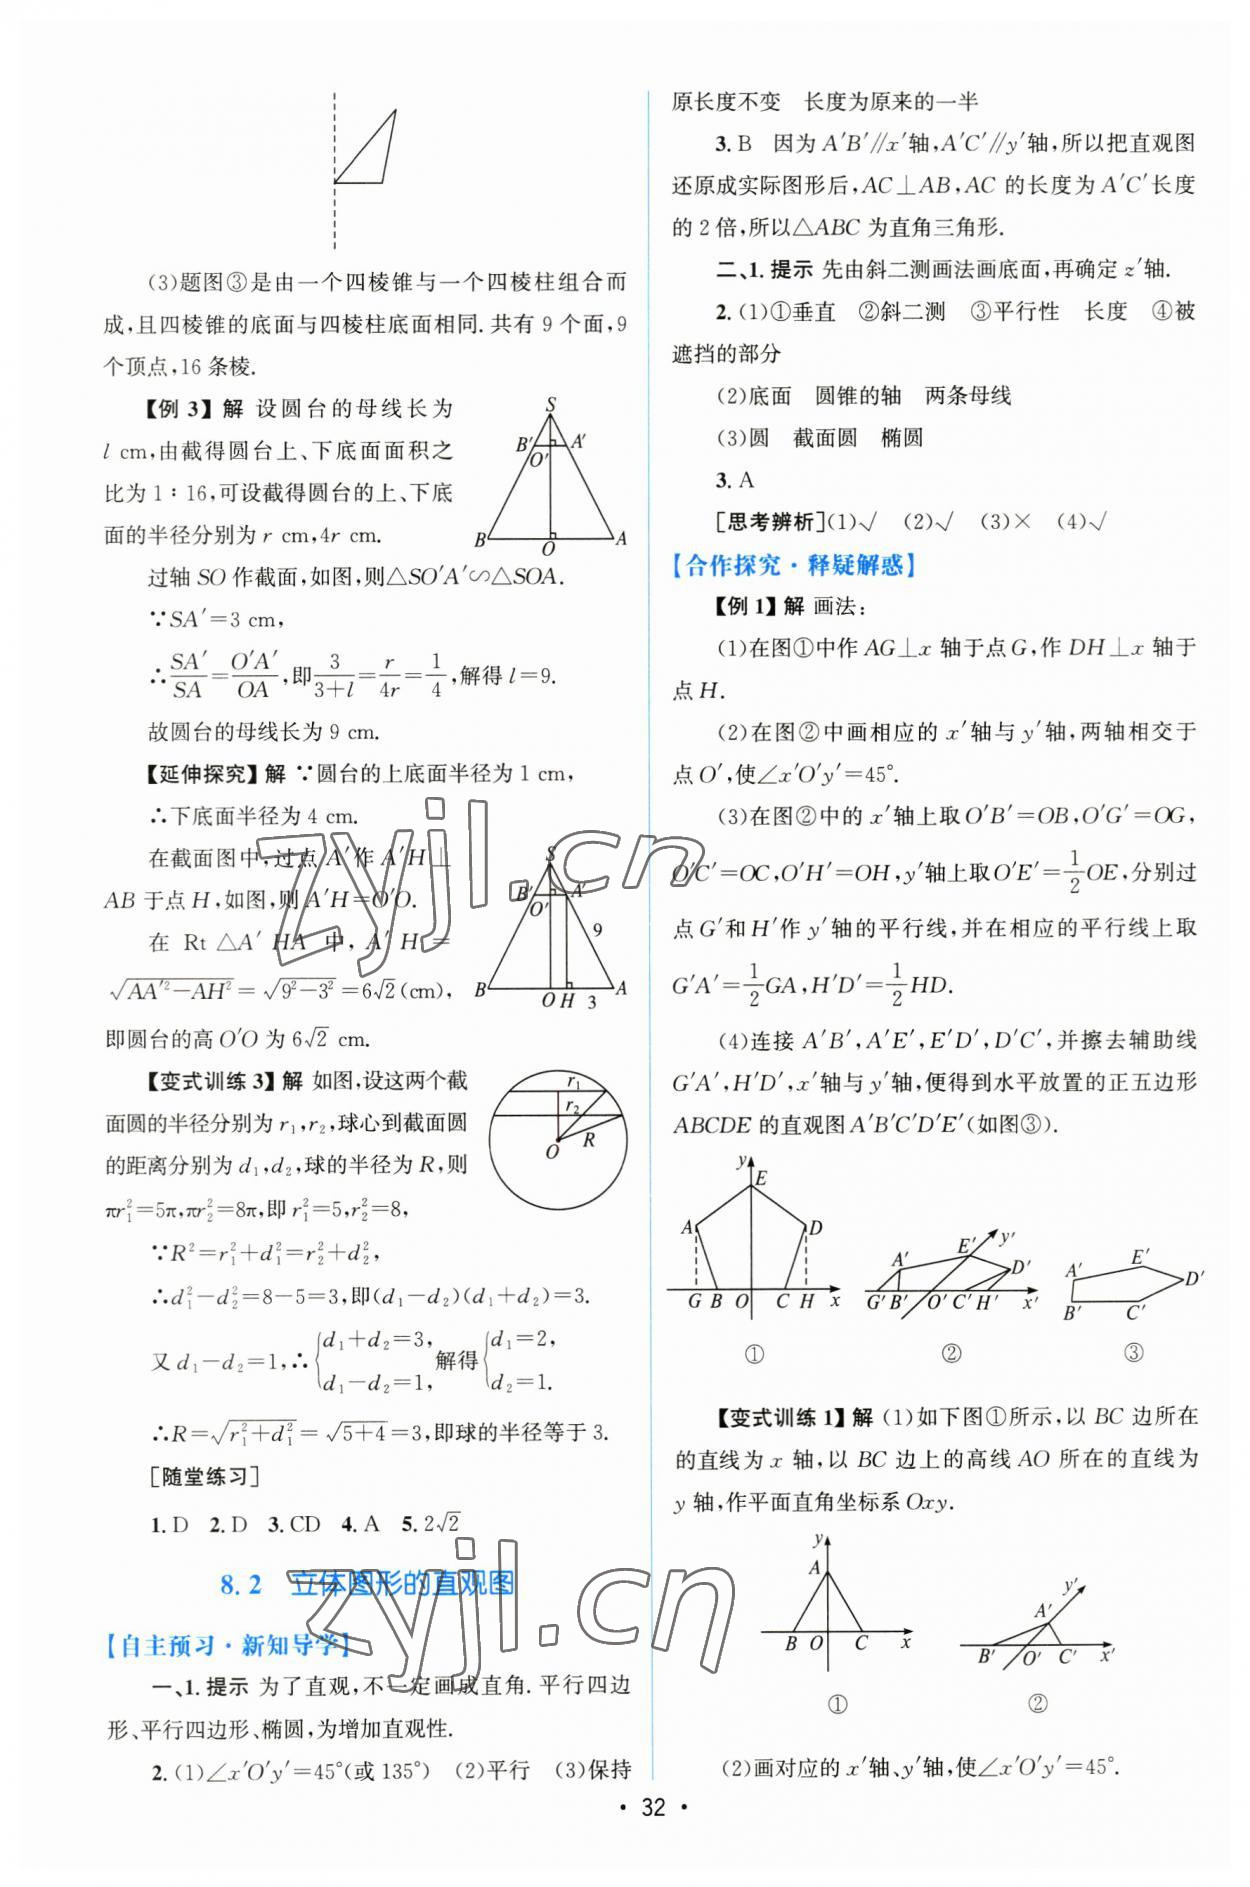 (3)题图③是由一个四棱锥与一个四棱柱组合而
成,且四棱锥的底面与四棱柱底面相同.共有 9 个面,9
个顶点,16 条棱.
【例 3】解 设圆台的母线长为
l cm,由截得圆台上、下底面面积之
比为 1∶16,可设截得圆台的上、下底
面的半径分别为 r cm,4r cm.
S
B′ A′
O′
B O A
过轴 SO 作截面,如图,则△SO′A′∽△SOA.
∵SA′=3 cm,
∴SA′/SA=O′A′/OA,即3/(3+l)=r/4r=1/4,解得 l=9.
故圆台的母线长为 9 cm.
【延伸探究】解 ∵圆台的上底面半径为 1 cm,
∴下底面半径为 4 cm.
在截面图中,过点 A′作 A′H⊥
AB 于点 H,如图,则 A′H=O′O.
在 Rt △A′HA 中, A′H =
√(AA′²−AH²)=√(9²−3²)=6√2(cm),
即圆台的高 O′O 为 6√2 cm.
S
B′ A′
O′
9
B O H 3 A
【变式训练 3】解 如图,设这两个截
面圆的半径分别为 r₁,r₂,球心到截面圆
的距离分别为 d₁,d₂,球的半径为 R,则
πr₁²=5π,πr₂²=8π,即 r₁²=5,r₂²=8,
r₁
r₂
R
O
∵R²=r₁²+d₁²=r₂²+d₂²,
∴d₁²−d₂²=8−5=3,即(d₁−d₂)(d₁+d₂)=3.
又 d₁−d₂=1,∴{d₁+d₂=3, d₁−d₂=1, 解得{d₁=2, d₂=1.
∴R=√(r₁²+d₁²)=√(5+4)=3,即球的半径等于 3.
[随堂练习]
1.D 2.D 3.CD 4.A 5.2√2
8.2 立体图形的直观图
【自主预习·新知导学】
一、1.提示 为了直观,不一定画成直角.平行四边
形、平行四边形、椭圆,为增加直观性.
2.(1)∠x′O′y′=45°(或 135°) (2)平行 (3)保持
原长度不变 长度为原来的一半
3.B 因为 A′B′∥x′轴,A′C′∥y′轴,所以把直观图
还原成实际图形后,AC⊥AB,AC 的长度为 A′C′长度
的 2 倍,所以△ABC 为直角三角形.
二、1.提示 先由斜二测画法画底面,再确定 z′轴.
2.(1)①垂直 ②斜二测 ③平行性 长度 ④被
遮挡的部分
(2)底面 圆锥的轴 两条母线
(3)圆 截面圆 椭圆
3.A
[思考辨析](1)√ (2)√ (3)× (4)√
【合作探究·释疑解惑】
【例 1】解 画法:
(1)在图①中作 AG⊥x 轴于点 G,作 DH⊥x 轴于
点 H.
(2)在图②中画相应的 x′轴与 y′轴,两轴相交于
点 O′,使∠x′O′y′=45°.
(3)在图②中的 x′轴上取 O′B′=OB,O′G′=OG,
O′C′=OC,O′H′=OH,y′轴上取 O′E′=1/2 OE,分别过
点 G′和 H′作 y′轴的平行线,并在相应的平行线上取
G′A′=1/2 GA,H′D′=1/2 HD.
(4)连接 A′B′,A′E′,E′D′,D′C′,并擦去辅助线
G′A′,H′D′,x′轴与 y′轴,便得到水平放置的正五边形
ABCDE 的直观图 A′B′C′D′E′(如图③).
y E A D G B O C H x
①
y′ E′ A′ D′ G′ B′ O′ C′ H′ x′
②
E′ A′ D′ B′ C′
③
【变式训练 1】解 (1)如下图①所示,以 BC 边所在
的直线为 x 轴,以 BC 边上的高线 AO 所在的直线为
y 轴,作平面直角坐标系 Oxy.
y A B O C x
①
y′ A′ B′ O′ C′ x′
②
(2)画对应的 x′轴、y′轴,使∠x′O′y′=45°.
· 32 ·
zyjl.cn
zyjl.cn